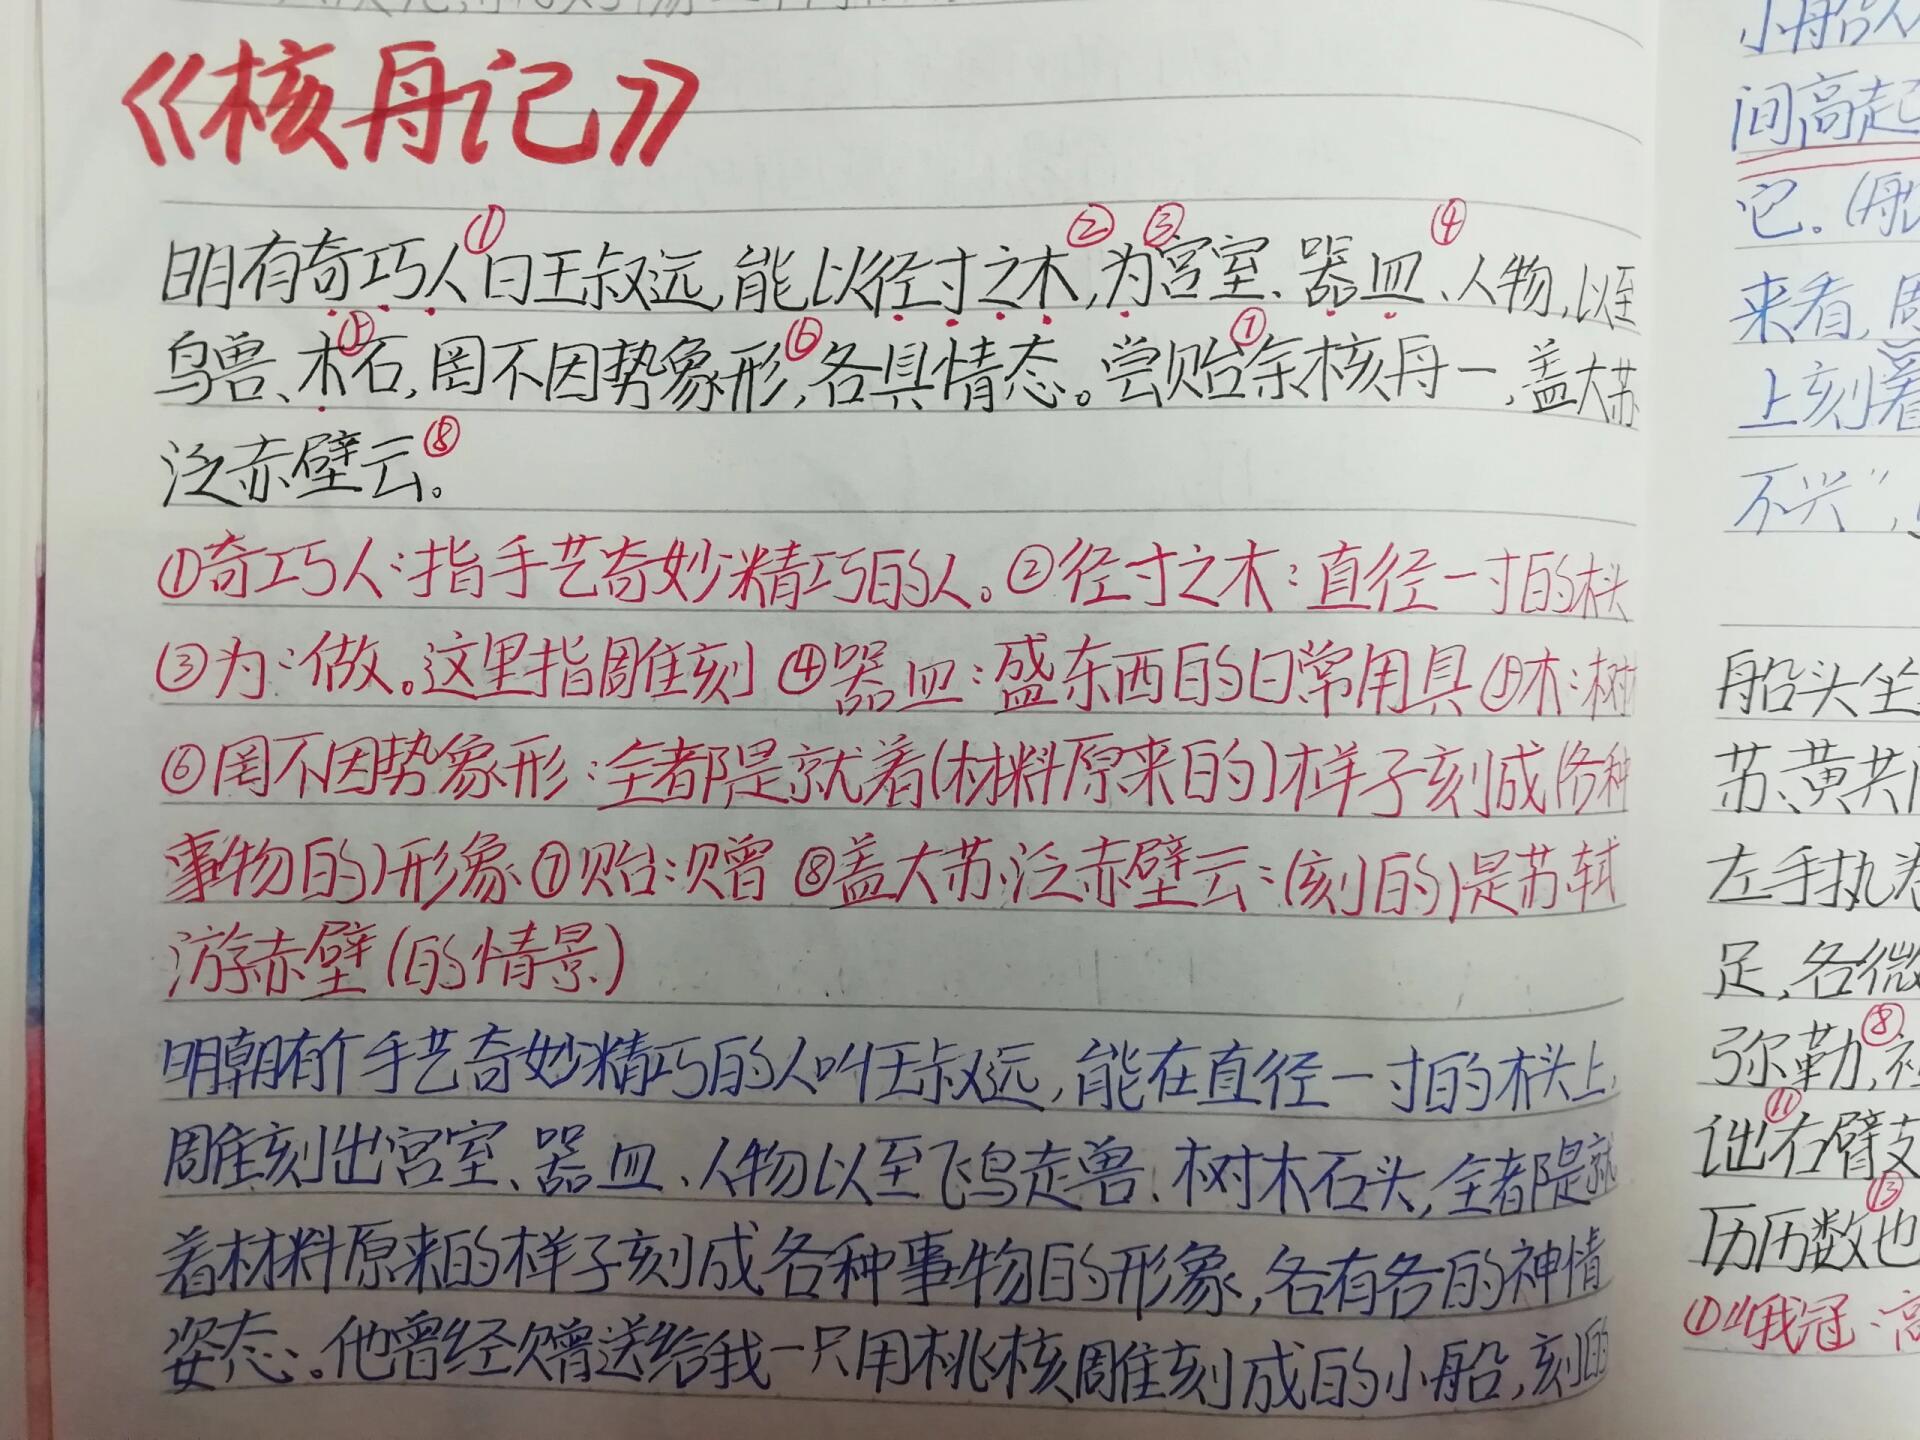 《核舟记》
明有奇巧人①曰王叔远,能以径寸之木②,为③宫室、器皿④、人物,以至
鸟兽、木⑤石,罔不因势象形⑥,各具情态。尝贻⑦余核舟一,盖大苏
泛赤壁云⑧。
①奇巧人:指手艺奇妙精巧的人。②径寸之木:直径一寸的木头
③为:做。这里指雕刻 ④器皿:盛东西的日常用具 ⑤木:树
⑥罔不因势象形:全都是就着(材料原来的)样子刻成(各种
事物的)形象 ⑦贻:赠 ⑧盖大苏泛赤壁云:(刻的)是苏轼
游赤壁(的情景)
明朝有个手艺奇妙精巧的人叫王叔远,能在直径一寸的木头上,
雕刻出宫室、器皿、人物以至飞鸟走兽、树木石头,全都是就
着材料原来的样子刻成各种事物的形象,各有各的神情
姿态。他曾经赠送给我一只用桃核雕刻成的小船,刻的
间高起
它。(船
来看,
上刻着
不兴”,
船头坐
苏、黄共
左手执卷
足,各微
弥勒,⑧
诎⑪右臂支
历历数也⑬
①峨冠:高